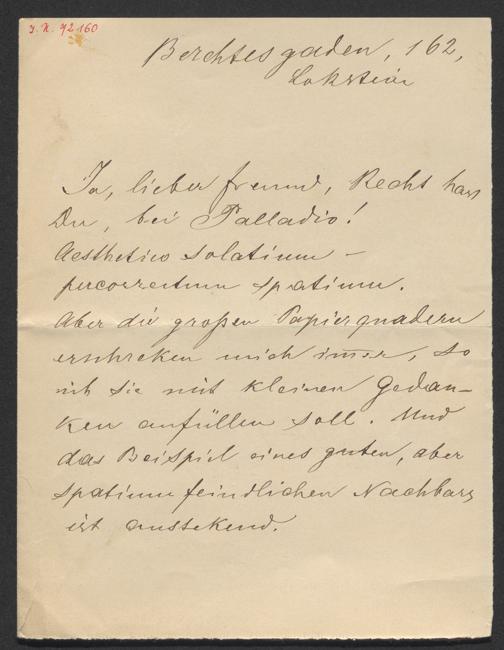 J. N. 72160
Berchtesgaden, 162,
Lokstein
Ja, lieber Freund, Recht hast
Du, bei Palladio!
Aesthetico solatium –
percorrectum spatium.
Aber die großen Papierquadern
erschreken mich immer, so
ich sie mit kleinen Gedan-
ken anfüllen soll. Und
das Beispiel eines guten, aber
spatiumfeindlichen Nachbars
ist anstekend.